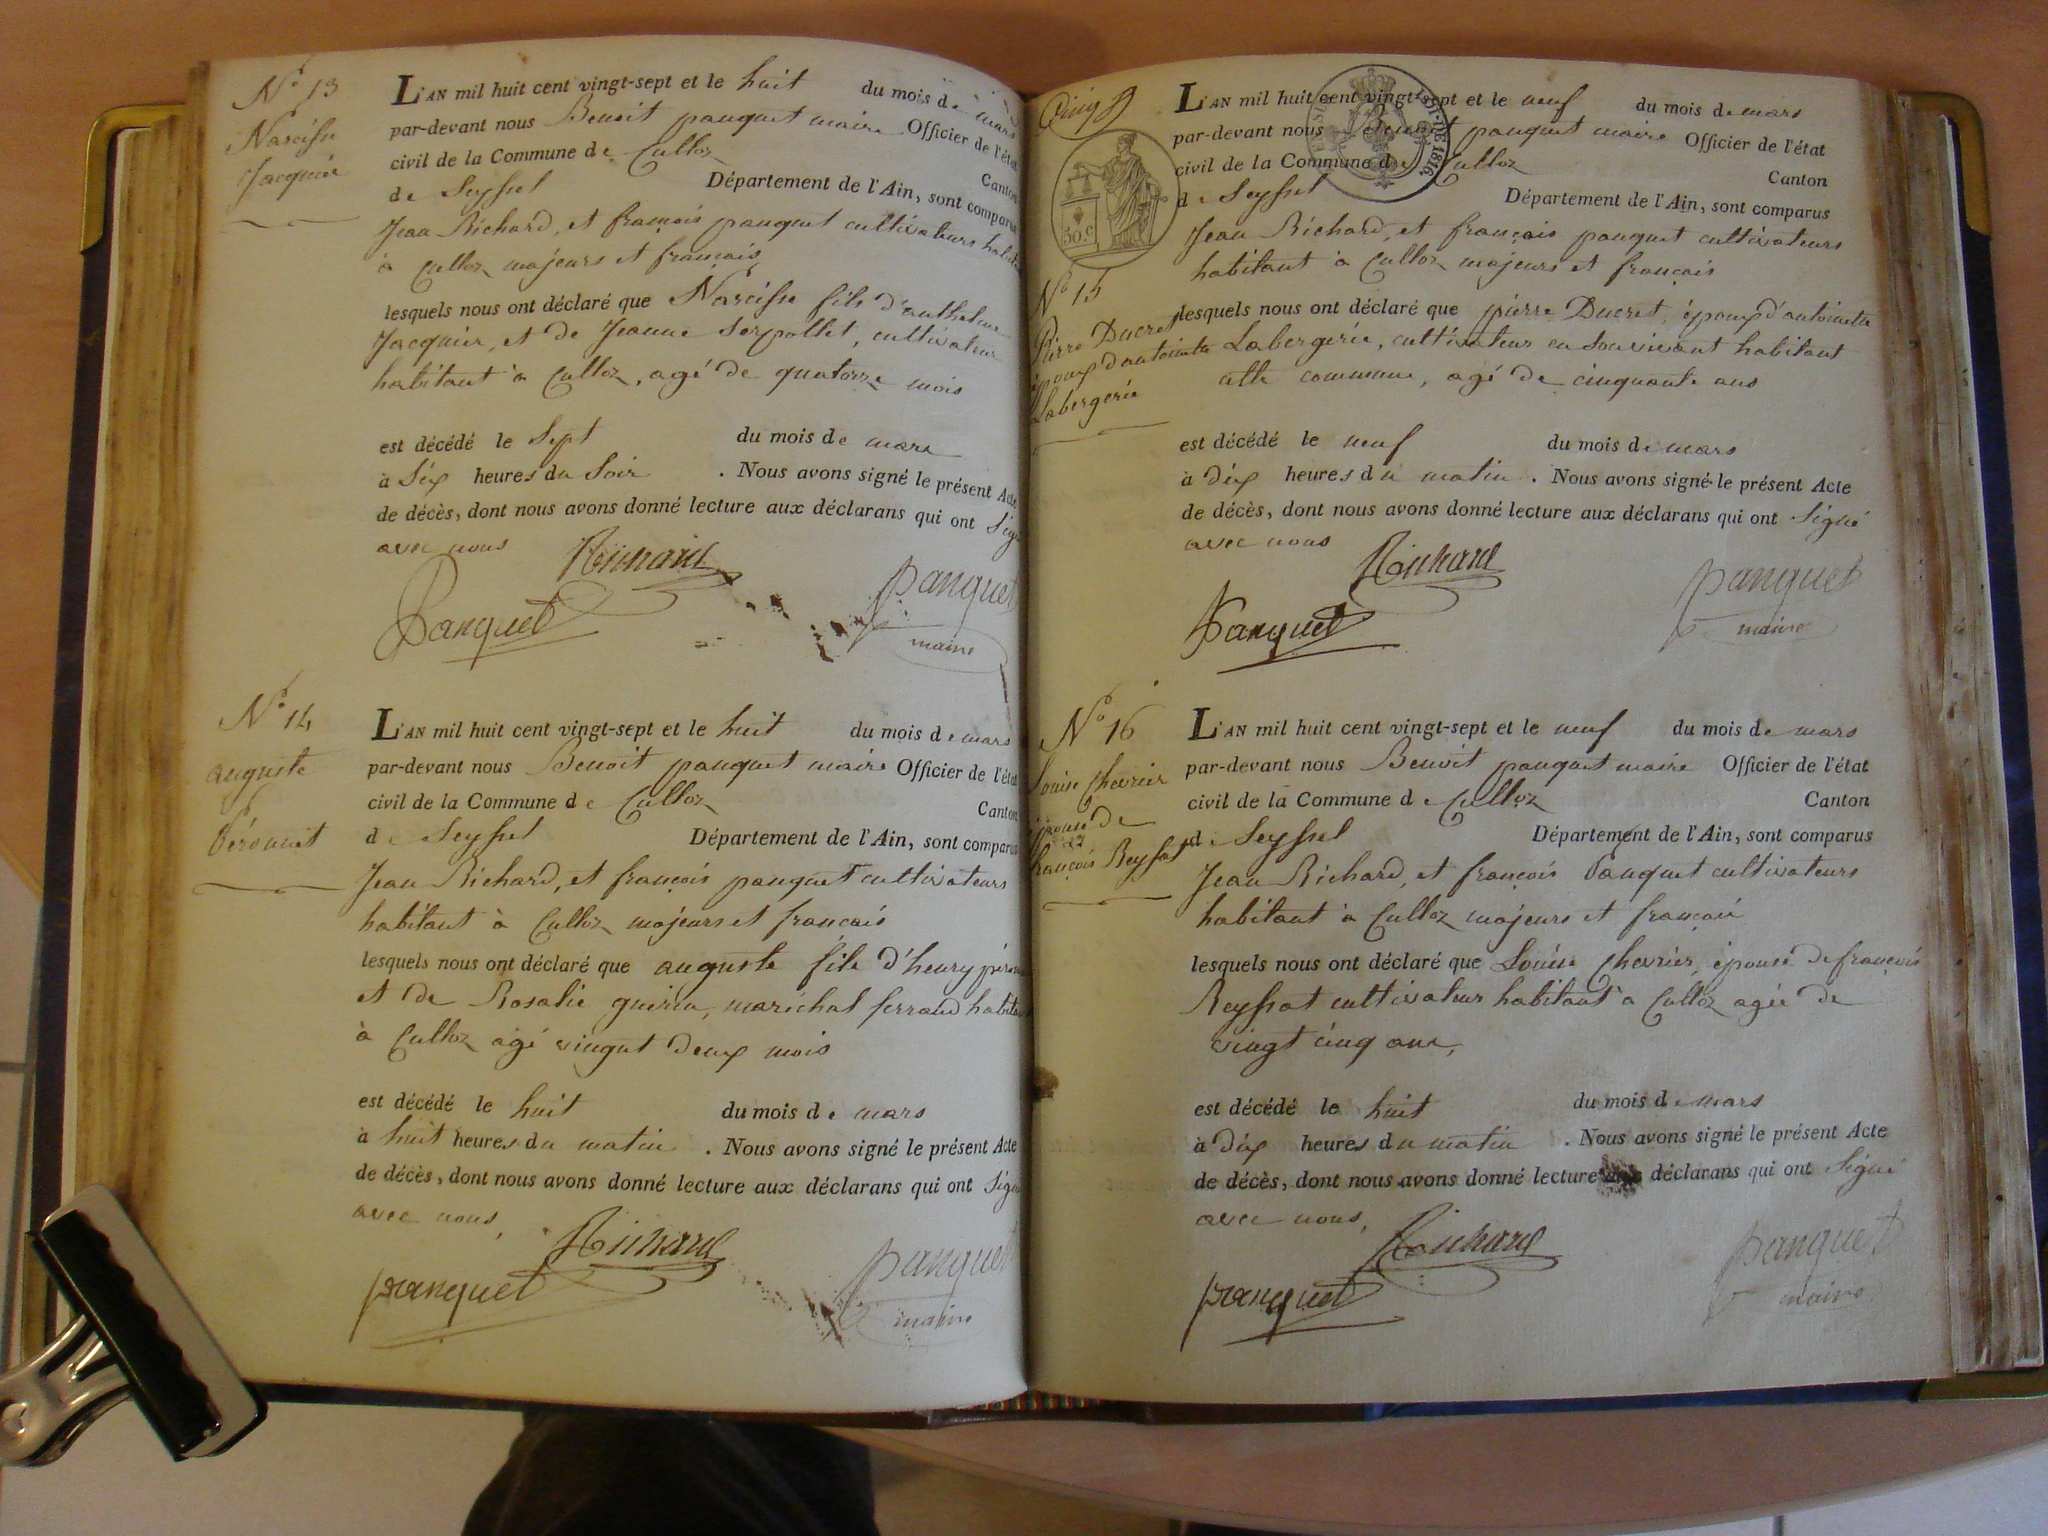 N.º 13
Narcisse
Jacquier
L'AN mil huit cent vingt-sept et le huit du mois de mars
par-devant nous Benoit panquet maire Officier de l'état
civil de la Commune de Culloz Canton
de Seyssel Département de l'Ain, sont comparus
Jean Richard, et francois panquet cultivateurs
à Culloz majeurs et français
lesquels nous ont déclaré que Narcisse fils d'anthelme
Jacquier, et de Jeanne Serpollet, cultivateur
habitant à Culloz, agé de quatorze mois
est décédé le Sept du mois de mars
à Six heures du Soir . Nous avons signé le présent Acte
de décès, dont nous avons donné lecture aux déclarans qui ont Signé
avec nous
Richard
Panquet
panquet
maire
N.º 14
auguste
Péronnet
L'AN mil huit cent vingt-sept et le huit du mois de mars
par-devant nous Benoit panquet maire Officier de l'état
civil de la Commune de Culloz Canton
de Seyssel Département de l'Ain, sont comparus
Jean Richard, et françois panquet cultivateurs
habitant à Culloz majeurs et francais
lesquels nous ont déclaré que auguste fils d'henry
et de Rosalie guirin, maréchal ferrand
à Culloz agé vingut deux mois
est décédé le huit du mois de mars
à huit heures du matin . Nous avons signé le présent Acte
de décès, dont nous avons donné lecture aux déclarans qui ont Signé
avec nous,
Richard
panquet
panquet
maire
50.c
LOI DE 1816
N.º 15
Pierre Ducret
époux d'antoinette
Labergerie
L'AN mil huit cent vingt-sept et le neuf du mois de mars
par-devant nous Benoit panquet maire Officier de l'état
civil de la Commune de Culloz Canton
de Seyssel Département de l'Ain, sont comparus
Jean Richard, et françois panquet cultivateurs
habitant à Culloz majeurs et français
lesquels nous ont déclaré que pierre Ducret, époux d'antoinette
Labergerie, cultivateur en Son vivant habitant
commune, agé de cinquante ans
est décédé le neuf du mois de mars
à dix heures du matin . Nous avons signé le présent Acte
de décès, dont nous avons donné lecture aux déclarans qui ont Signé
avec nous
Richard
Panquet
panquet
maire
N.º 16
Louise Chevrier
épouse de
françois Reyssat
L'AN mil huit cent vingt-sept et le neuf du mois de mars
par-devant nous Benoit panquet maire Officier de l'état
civil de la Commune de Culloz Canton
de Seyssel Département de l'Ain, sont comparus
Jean Richard, et françois Panquet cultivateurs
habitant à Culloz majeurs et français
lesquels nous ont déclaré que Louise Chevrier, épouse de françois
Reyssat cultivateur habitant à Culloz agée de
vingt cinq ans,
est décédé le huit du mois de mars
à dix heures du matin . Nous avons signé le présent Acte
de décès, dont nous avons donné lecture aux déclarans qui ont Signé
avec nous,
Richard
panquet
panquet
maire